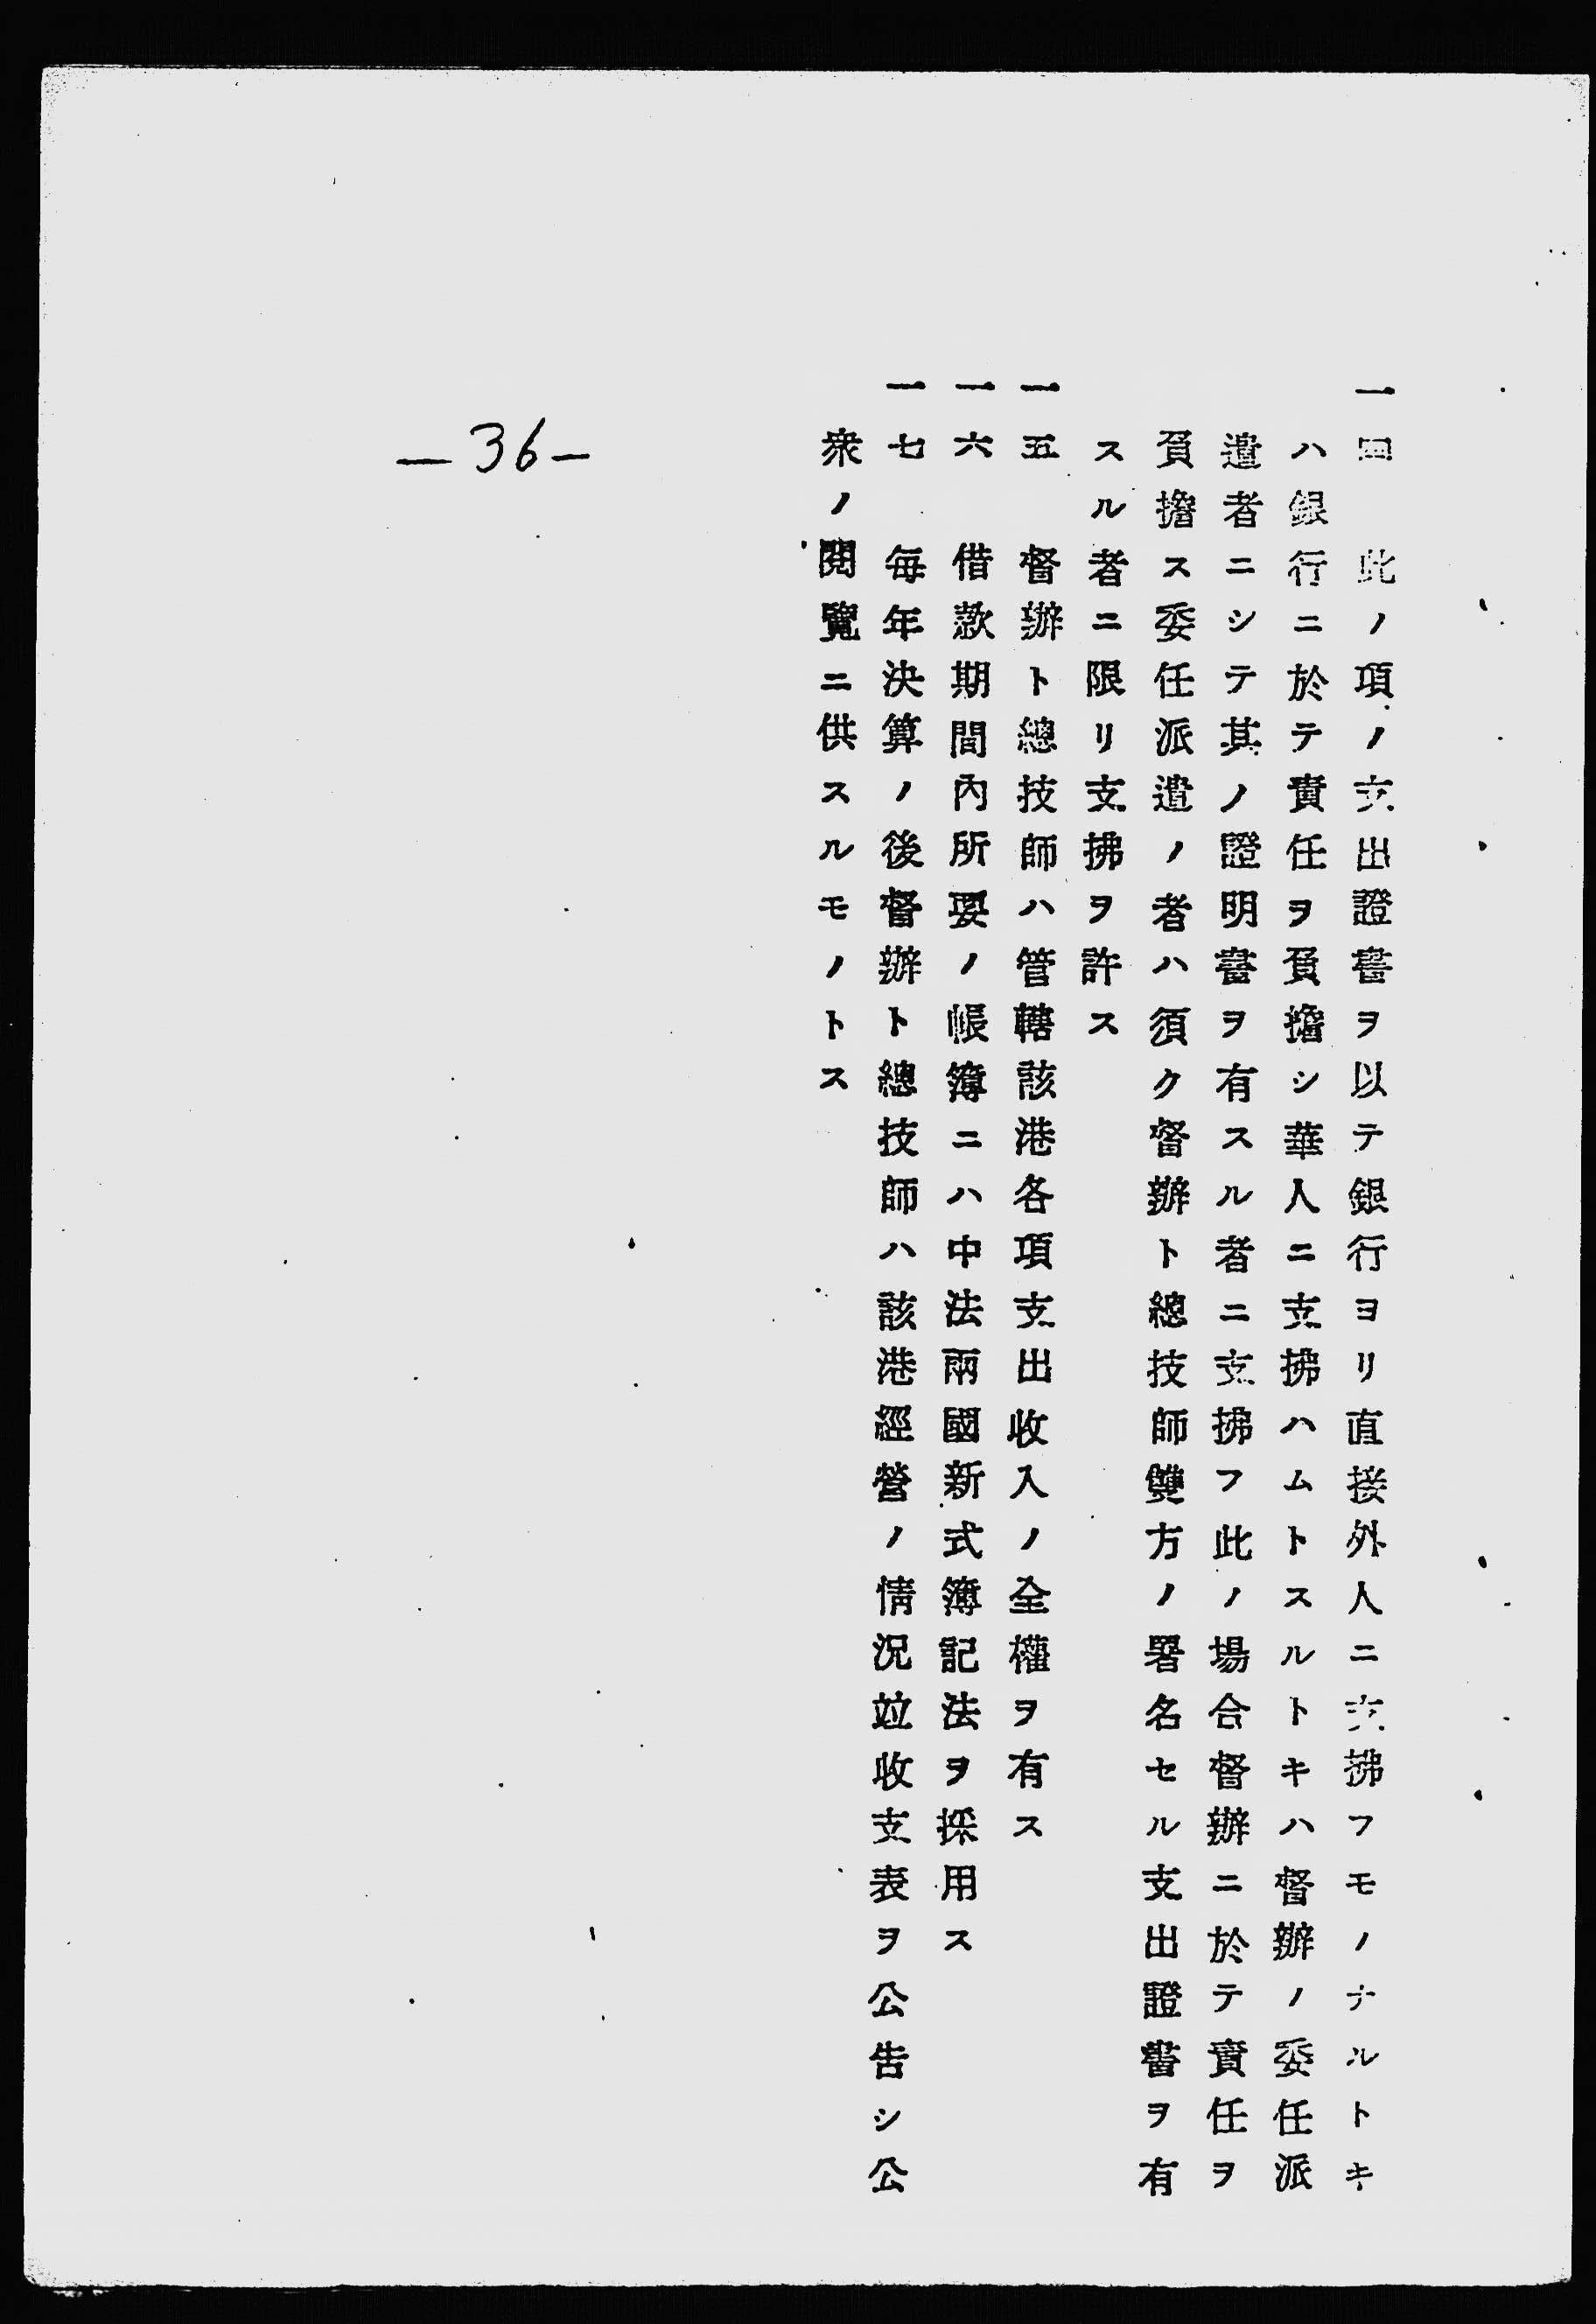 一四　此ノ項ノ支出證書ヲ以テ銀行ヨリ直接外人ニ支拂フモノナルトキ
ハ銀行ニ於テ責任ヲ負擔シ華人ニ支拂ハムトスルトキハ督辦ノ委任派
遣者ニシテ其ノ證明書ヲ有スル者ニ支拂フ此ノ場合督辦ニ於テ責任ヲ
負擔ス委任派遣ノ者ハ須ク督辦ト總技師雙方ノ署名セル支出證書ヲ有
スル者ニ限リ支拂ヲ許ス
一五　督辦ト總技師ハ管轄該港各項支出收入ノ全權ヲ有ス
一六　借款期間內所要ノ帳簿ニハ中法兩國新式簿記法ヲ採用ス
一七　每年決算ノ後督辦ト總技師ハ該港經營ノ情況竝收支表ヲ公告シ公
衆ノ閱覽ニ供スルモノトス
—36—